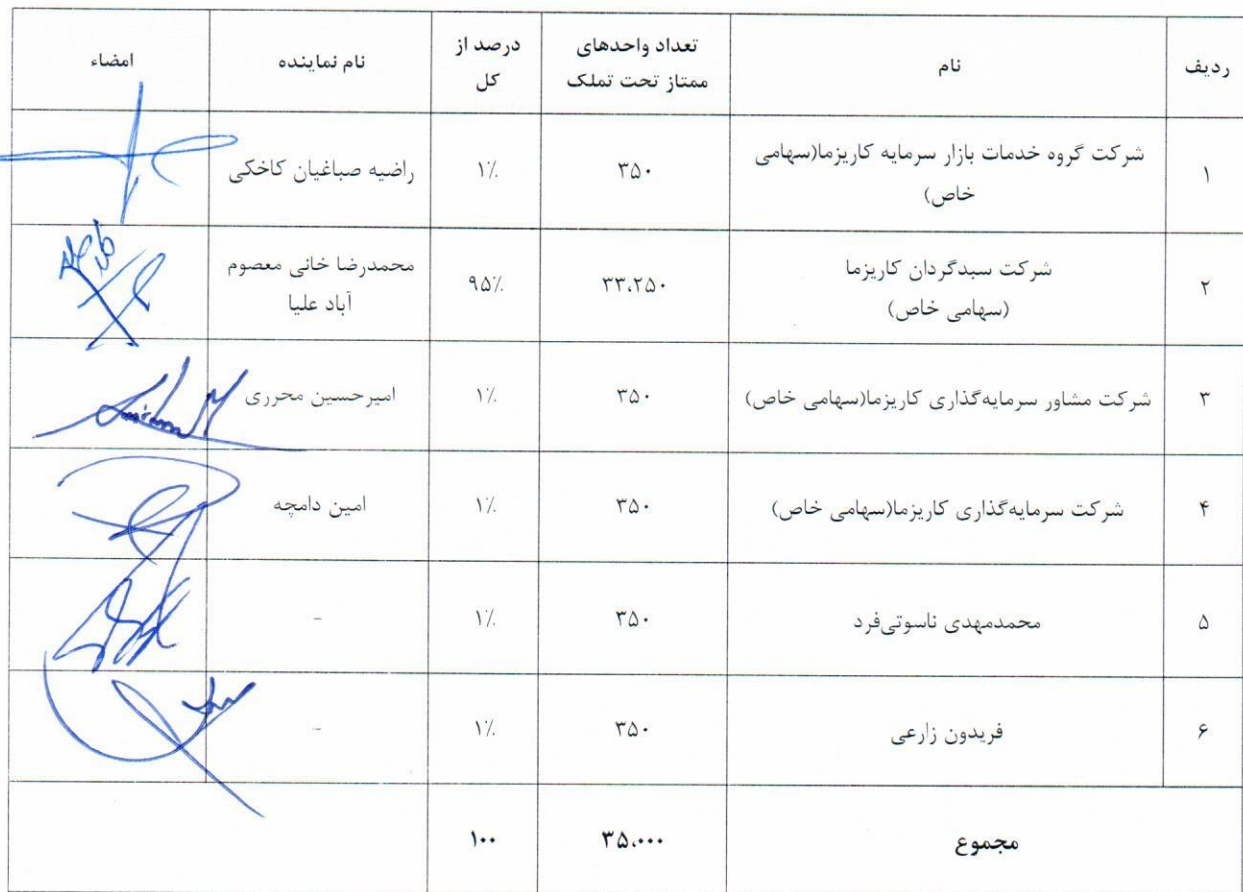 ردیف	نام	تعداد واحدهای ممتاز تحت تملک	درصد از کل	نام نماینده	امضاء
۱	شرکت گروه خدمات بازار سرمایه کاریزما(سهامی خاص)	۳۵۰	۱٪	راضیه صباغیان کاخکی
۲	شرکت سبدگردان کاریزما (سهامی خاص)	۳۳،۲۵۰	۹۵٪	محمدرضا خانی معصوم آباد علیا
۳	شرکت مشاور سرمایه‌گذاری کاریزما(سهامی خاص)	۳۵۰	۱٪	امیرحسین محرری
۴	شرکت سرمایه‌گذاری کاریزما(سهامی خاص)	۳۵۰	۱٪	امین دامچه
۵	محمدمهدی ناسوتی‌فرد	۳۵۰	۱٪	-
۶	فریدون زارعی	۳۵۰	۱٪	-
مجموع	۳۵،۰۰۰	۱۰۰